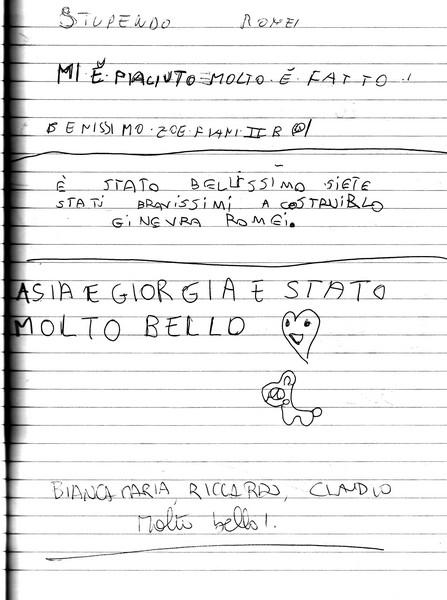 STUPENDO ROMEI
MI È PIACIUTO MOLTO È FATTO
BENISSIMO ZOE FIANI II B
È STATO BELLISSIMO SIETE
STATI BRAVISSIMI A COSTRUIRLO
GINEVRA ROMEI.
ASIA E GIORGIA E STATO
MOLTO BELLO
BIANCA MARIA, RICCARDO, CLAUDIO
Molto bello!.